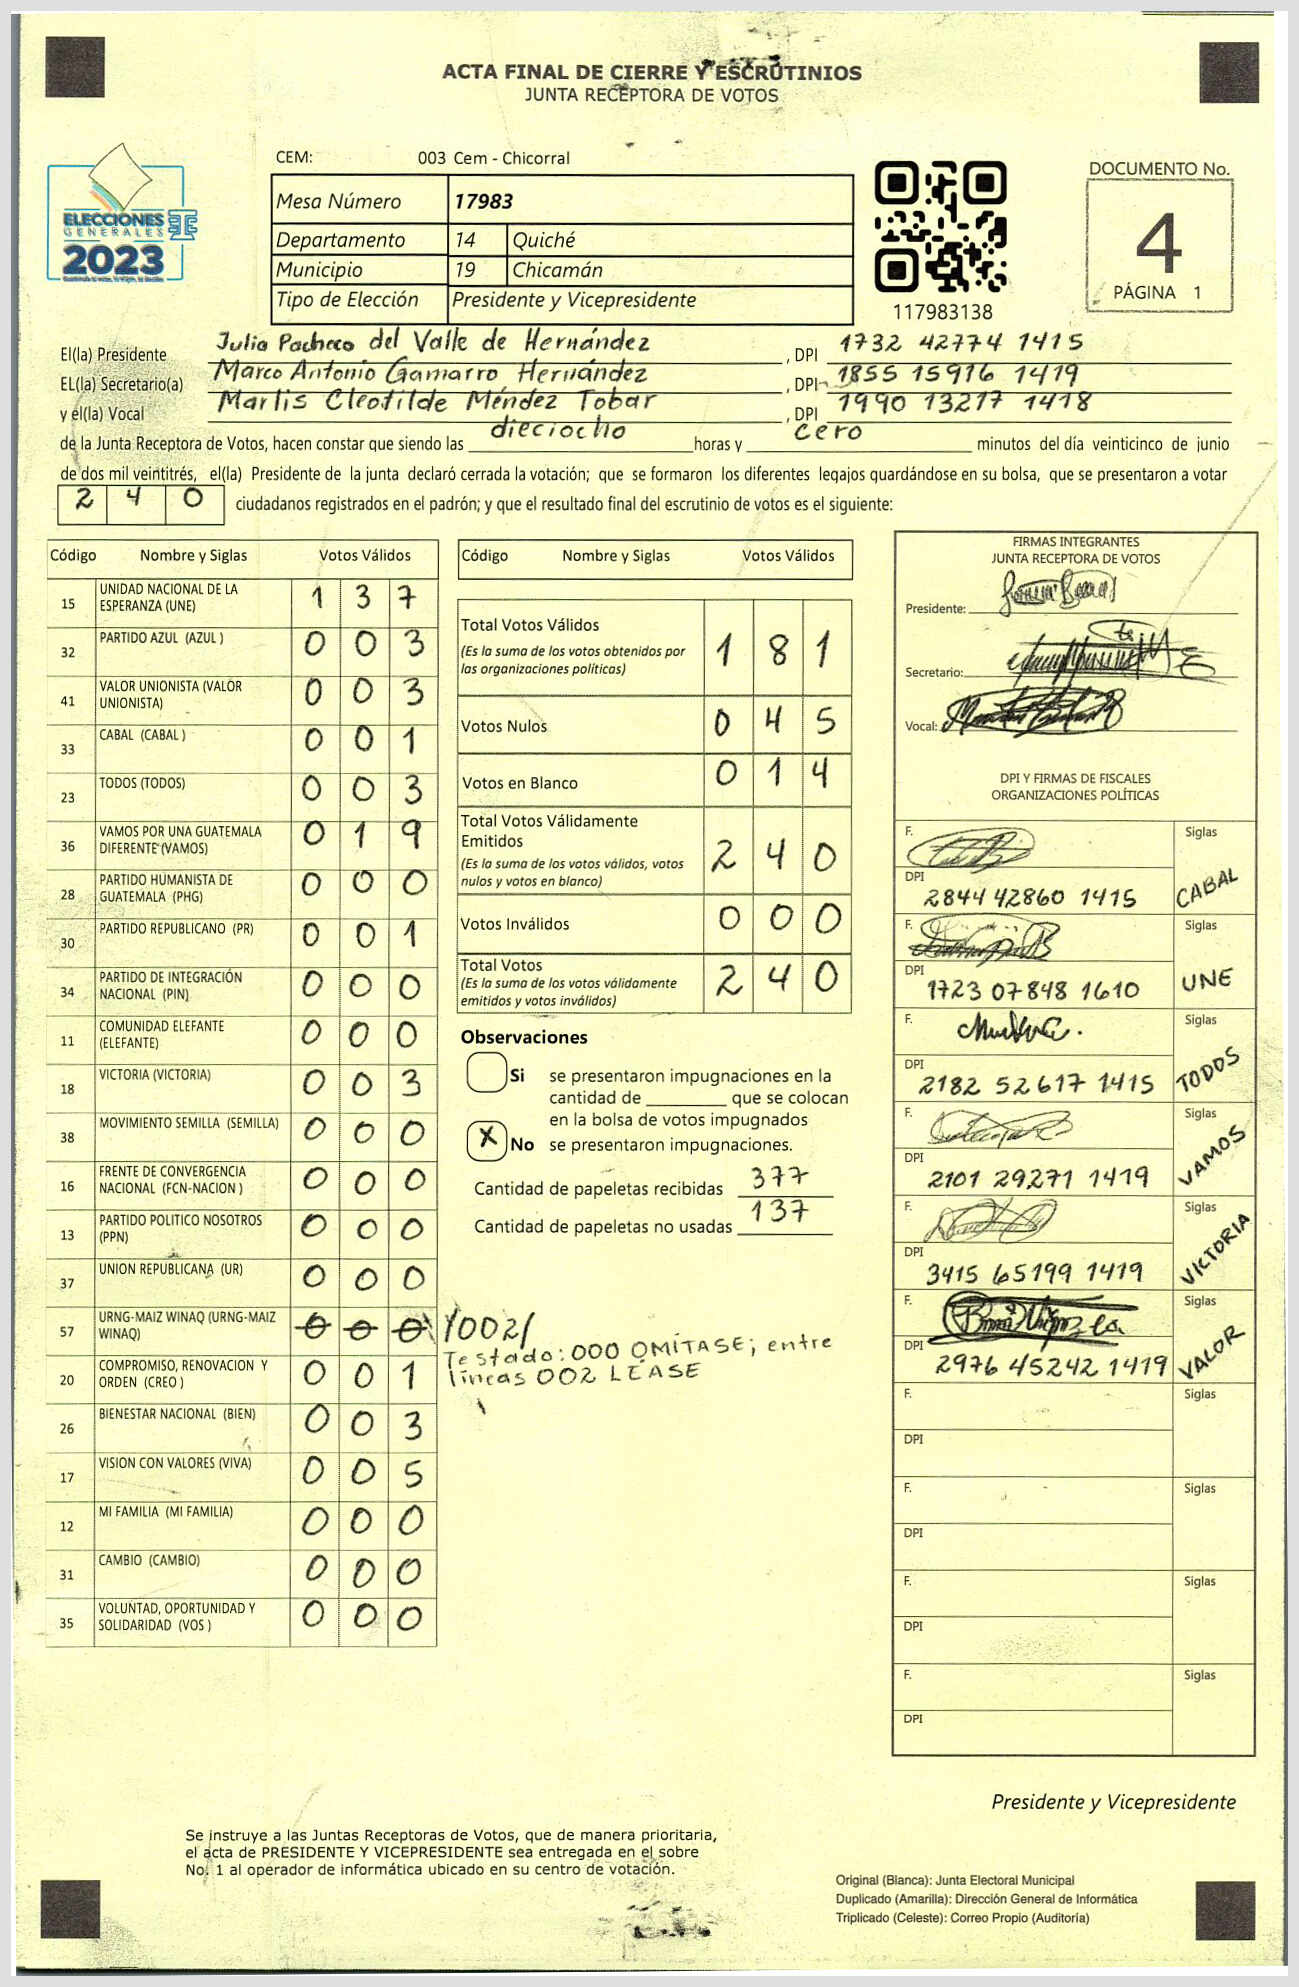 ACTA FINAL DE CIERRE Y ESCRUTINIOS
JUNTA RECEPTORA DE VOTOS
CEM: 003 Cem - Chicorral
ELECCIONES
GENERALES
2023
Mesa Número 17983
Departamento 14 Quiché
Municipio 19 Chicamán
Tipo de Elección Presidente y Vicepresidente
117983138
DOCUMENTO No.
4
PÁGINA 1
El(la) Presidente Julia Pacheco del Valle de Hernández, DPI 1732 42774 1415
EL(la) Secretario(a) Marco Antonio Gamarro Hernández, DPI 1855 15916 1419
y el(la) Vocal Marlis Cleotilde Méndez Tobar, DPI 1990 13217 1418
de la Junta Receptora de Votos, hacen constar que siendo las dieciocho horas y cero minutos del día veinticinco de junio
de dos mil veintitrés, el(la) Presidente de la junta declaró cerrada la votación; que se formaron los diferentes legajos guardándose en su bolsa, que se presentaron a votar
2 4 0 ciudadanos registrados en el padrón; y que el resultado final del escrutinio de votos es el siguiente:
Código Nombre y Siglas Votos Válidos
15 UNIDAD NACIONAL DE LA ESPERANZA (UNE) 1 3 7
32 PARTIDO AZUL (AZUL ) 0 0 3
41 VALOR UNIONISTA (VALOR UNIONISTA) 0 0 3
33 CABAL (CABAL ) 0 0 1
23 TODOS (TODOS) 0 0 3
36 VAMOS POR UNA GUATEMALA DIFERENTE (VAMOS) 0 1 9
28 PARTIDO HUMANISTA DE GUATEMALA (PHG) 0 0 0
30 PARTIDO REPUBLICANO (PR) 0 0 1
34 PARTIDO DE INTEGRACIÓN NACIONAL (PIN) 0 0 0
11 COMUNIDAD ELEFANTE (ELEFANTE) 0 0 0
18 VICTORIA (VICTORIA) 0 0 3
38 MOVIMIENTO SEMILLA (SEMILLA) 0 0 0
16 FRENTE DE CONVERGENCIA NACIONAL (FCN-NACION ) 0 0 0
13 PARTIDO POLITICO NOSOTROS (PPN) 0 0 0
37 UNION REPUBLICANA (UR) 0 0 0
57 URNG-MAIZ WINAQ (URNG-MAIZ WINAQ) 0 0 0 /002/
Testado: 000 OMÍTASE; entre
líneas 002 LEASE
20 COMPROMISO, RENOVACION Y ORDEN (CREO ) 0 0 1
26 BIENESTAR NACIONAL (BIEN) 0 0 3
17 VISION CON VALORES (VIVA) 0 0 5
12 MI FAMILIA (MI FAMILIA) 0 0 0
31 CAMBIO (CAMBIO) 0 0 0
35 VOLUNTAD, OPORTUNIDAD Y SOLIDARIDAD (VOS ) 0 0 0
Código Nombre y Siglas Votos Válidos
Total Votos Válidos 1 8 1
(Es la suma de los votos obtenidos por
las organizaciones políticas)
Votos Nulos 0 4 5
Votos en Blanco 0 1 4
Total Votos Válidamente
Emitidos 2 4 0
(Es la suma de los votos válidos, votos
nulos y votos en blanco)
Votos Inválidos 0 0 0
Total Votos 2 4 0
(Es la suma de los votos válidamente
emitidos y votos inválidos)
Observaciones
Si se presentaron impugnaciones en la
cantidad de ________ que se colocan
en la bolsa de votos impugnados
X No se presentaron impugnaciones.
Cantidad de papeletas recibidas 377
Cantidad de papeletas no usadas 137
FIRMAS INTEGRANTES
JUNTA RECEPTORA DE VOTOS
Presidente:
Secretario:
Vocal:
DPI Y FIRMAS DE FISCALES
ORGANIZACIONES POLÍTICAS
F. Siglas
DPI 2844 42860 1415 CABAL
F. Siglas
DPI 1723 07848 1610 UNE
F. Siglas
DPI 2182 52617 1415 TODOS
F. Siglas
DPI 2101 29271 1419 VAMOS
F. Siglas
DPI 3415 65199 1419 VICTORIA
F. Siglas
DPI 2976 45242 1419 VALOR
F. Siglas
DPI
F. Siglas
DPI
F. Siglas
DPI
F. Siglas
DPI
Presidente y Vicepresidente
Se instruye a las Juntas Receptoras de Votos, que de manera prioritaria,
el acta de PRESIDENTE Y VICEPRESIDENTE sea entregada en el sobre
No. 1 al operador de informática ubicado en su centro de votación.
Original (Blanca): Junta Electoral Municipal
Duplicado (Amarilla): Dirección General de Informática
Triplicado (Celeste): Correo Propio (Auditoría)